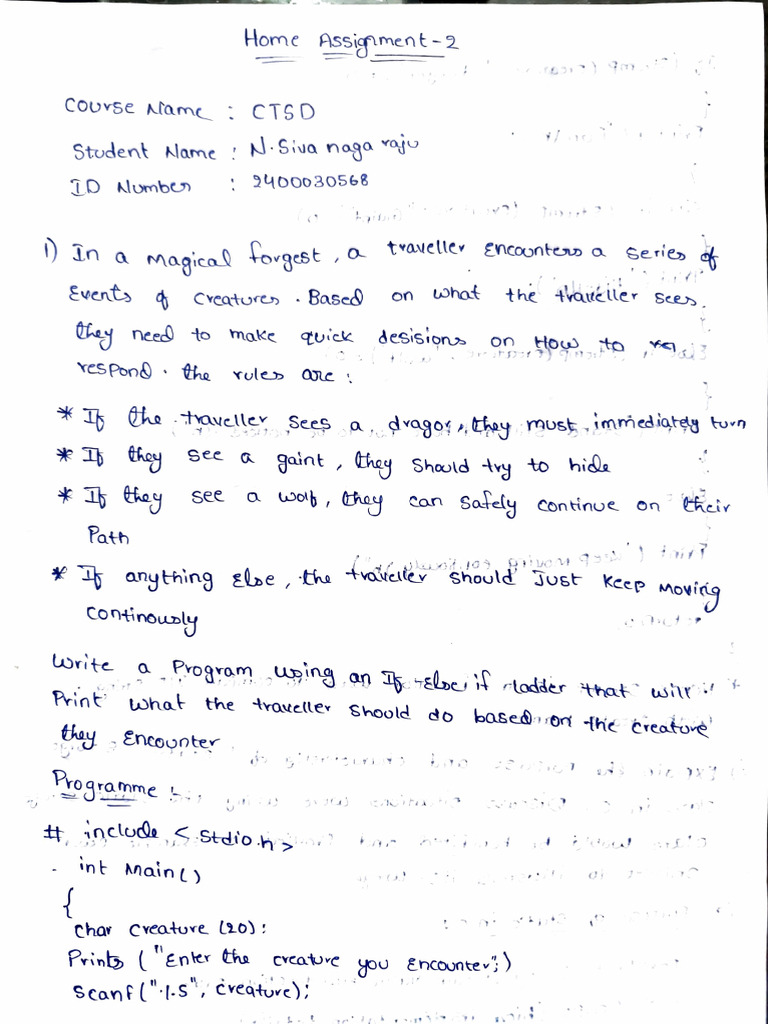 Home Assignment-2
Course Name : CTSD
Student Name : N.Siva naga raju
ID Number : 2400030568
1) In a magical forgest, a traveller encounters a series of
Events of creatures. Based on what the traveller sees.
they need to make quick desisions on How to
respond. the rules are :
* If the traveller sees a dragon, they must immediately turn
* If they see a gaint, they should try to hide
* If they see a wolf, they can safely continue on their
Path
* If anything else, the traveller should Just keep moving
continously
Write a Program using an If else if ladder that will
Print what the traveller should do based on the creature
they encounter
Programme :
# include <stdio.h>
int Main()
{
char creature (20):
Prints ("Enter the creature you encounter";)
scanf("%s", creature);